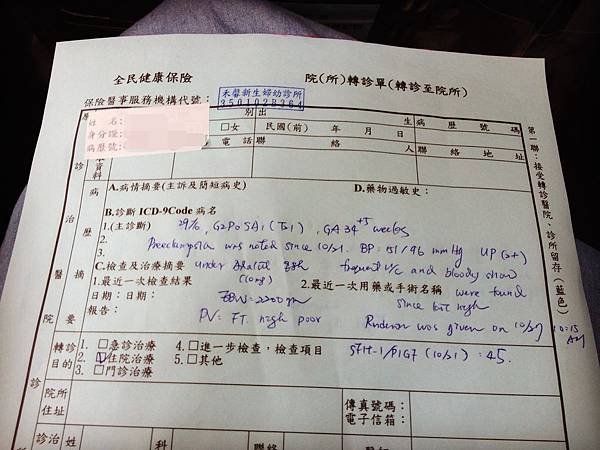 全民健康保險 院(所)轉診單(轉診至院所)
保險醫事服務機構代號:
禾馨新生婦幼診所
3501028364
姓名:
身分證:
病歷號:
別 出 生 病 歷 號 碼
□女 民國(前) 年 月 日
電話 聯 絡 人 聯 絡 地 址
本資料
A.病情摘要(主訴及簡短病史) D.藥物過敏史:
B.診斷 ICD-9Code 病名
1.(主診斷) G2P0SA1 , GA 34+5 weeks
2. Preeclampsia was noted since 10/31. BP: 151/96 mmHg UP (2+)
3.
C.檢查及治療摘要 under frequent u/c and bloody show
1.最近一次檢查結果 2.最近一次用藥或手術名稱 were found
日期: 日期: EBW = 2200 gm since last night
報告: PV: FT. high poor was given on 10:15 AM
轉診目的
1. □急診治療 4. □進一步檢查,檢查項目 sFlt-1/PlGF (10/31) : 45.
2. ☑住院治療 5. □其他
3. □門診治療
院所住址 傳真號碼:
電子信箱:
診治 姓 科 聯絡
診治醫院
病歷摘要
第一聯:接受轉診醫院、診所留存(藍色)